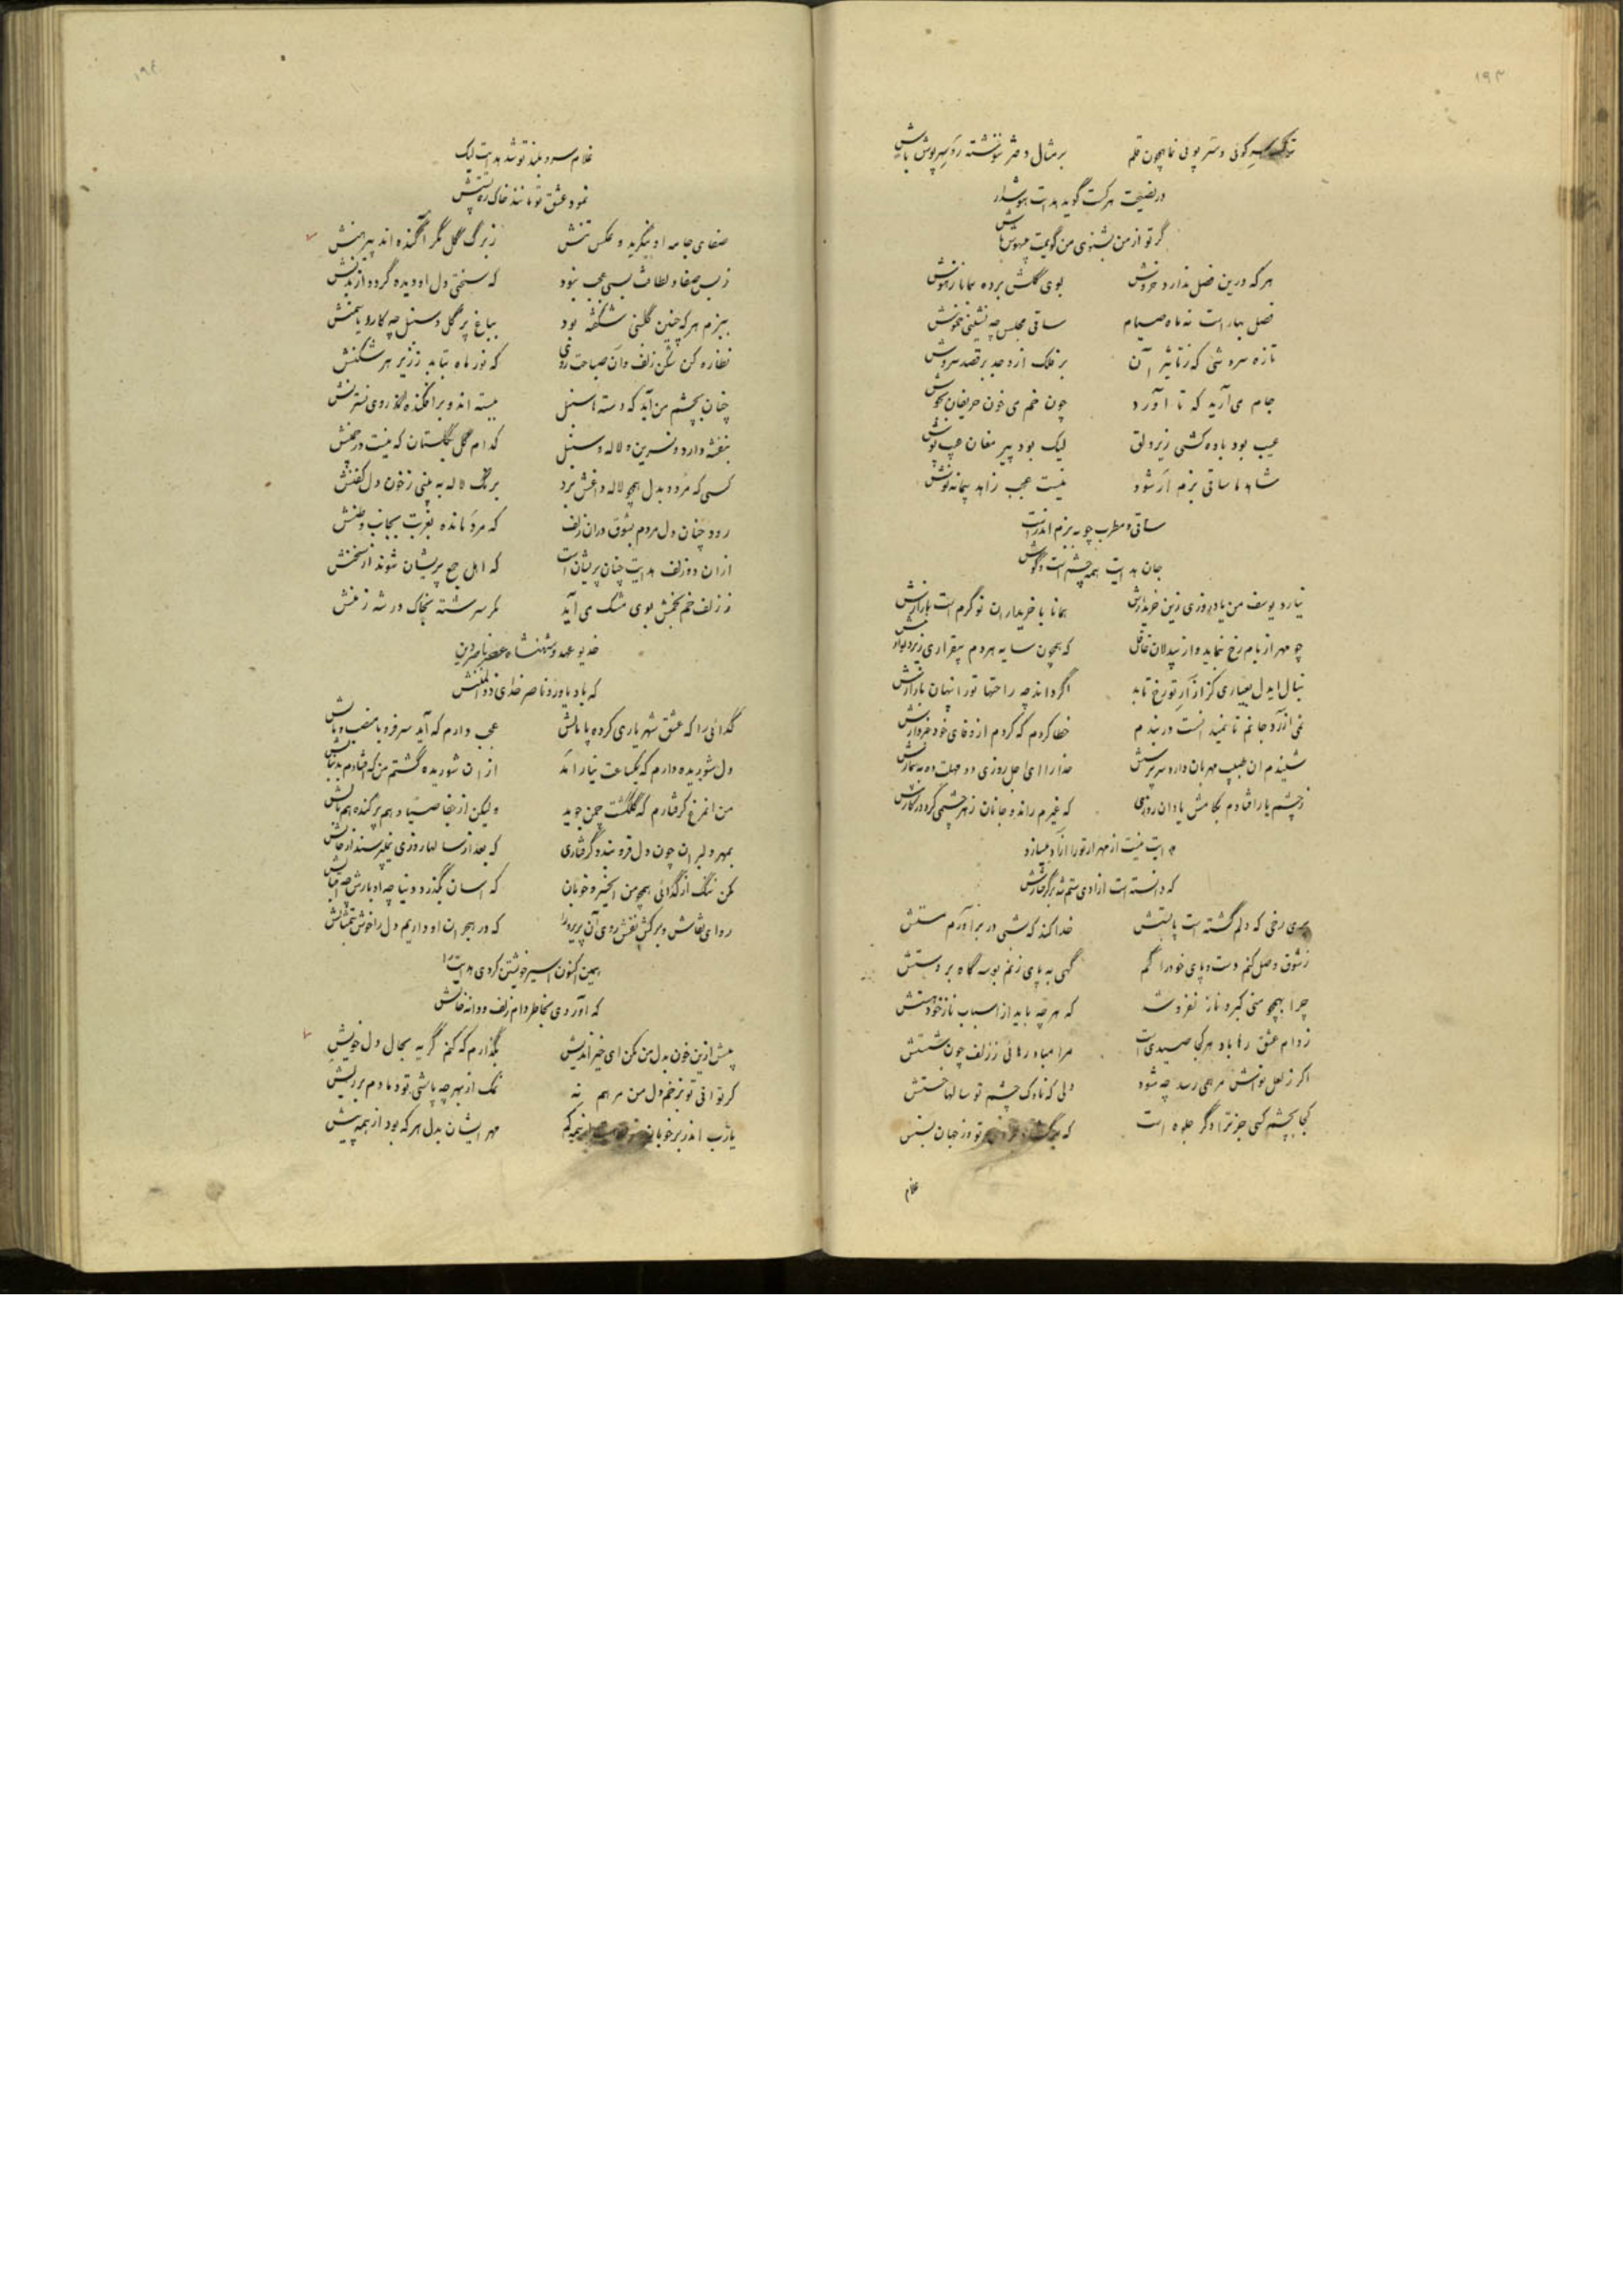 ۱۹۳
کوئی و ستر پوئی نما همچون قلم برمثال دفتر بنوشته رو سرپوش باش
در نصیحت هر کست گوید هدایت هوشدار
گر تو از من بشنوی من گویمت بیهوش باش
هر که درین فصل ندارد خروش بوی گلش برده همانا ز هوش
فصل بهار است نه ماه صیام ساقی مجلس چه نشینی خموش
تازه سروشی که ز تاثیر آن بر فلک از وجد برقصد سروش
جام می آرید که تا آورد چون خم می خون حریفان بجوش
عیب بود باده کشی زیر دلق لیک بود پیر مغان عیب پوش
شاهد ما ساقی بزم ار شود نیست عجب زاهد پیمانه نوش
ساقی و مطرب چو به بزم اندر است
جان هدایت همه چشم است و گوش
نیارد یوسف من یاد روزی زین خریدارش همانا با خریداران نو گرم است بازارش
چو مهر از بام رخ نماید و از بیدلان غافل که همچون سایه هر دم بیقراری زیر دیوارش
بنال ایدل بعیاری کز آزار تو رخ تابد اگر داند چه راحتها تو را پنهان بازارش
خطا کردم که کردم از وفای خود خبردارش
شنیدم ان طبیب مهربان دارد سر پرسش خدا را ای اجل روزی دو مهلت ده به بیمارش
ز چشم یار افتادم بکامش یاد ان روزی که غیرم راند و جانان زهر چشمی کرد در کارش
هدایت نیست از مهر ار تو را ازاد میسازد
که دانسته است ازادی ستم شد بر گرفتارش
پری رخی که دلم گشته است پابستش خدا کند که شبی در بر آورم مستش
ز شوق وصل کنم دست و پای خود را گم گهی به پای زنم بوسه گاه بر دستش
چرا بهیچو منی کبر و ناز نفروشد که هر چه باید از اسباب ناز خود هستش
ز دام عشق رها باد هر کجا صیدی است مرا مباد رهائی ز زلف چون شستش
اگر ز لعل تواش مرهمی رسد چه شود دلی که ناوک چشم تو سالها خستش
کجا بچشم کسی جز ترا دگر جلوه است تو وز جهان بستش
غلام
۱۹٤
غلام سرو بلند تو شد هدایت لیک
نمود عشق تو مانند خاک ره پستش
صفای جامه او بنگرید و عکس تنش ز برگ گل مگر آکنده اند پیرهنش
ز بس صفا و لطافت بسی عجب نبود که سختی دل او دیده گردد از بدنش
ببزم هر که چنین گلبنی شکفته بود بباغ پر گل و سنبل چه کار و یاسمنش
نظاره کن شکن زلف و آن صباحت روی که نور ماه بتابد ز زیر هر شکنش
چنان بچشم من آید که دسته ها سنبل ببسته اند و برافکنده اند روی نسترنش
بنفشه دارد و نسرین و لاله و سنبل کدام گل بگلستان که نیست در چمنش
کسی که مرد و بدل همچو لاله داغش برد برنگ لاله به بینی ز خون دل کفنش
رود چنان دل مردم بشوق در ان زلف که مرد مانده بغربت بجانب وطنش
از ان دو زلف هدایت چنان پریشان است که اهل جمع پریشان شوند از سخنش
ز زلف خم بخمش بوی مشک می آید مگر سرشته بخاک در شه زمنش
خدیو عهد و شهنشاه عصر ناصر دین
که باد یاور و ناصر خدای ذوالمننش
گدائی را که عشق شهریاری کرده پامالش عجب دارم که آید سر فرو با منصب و مالش
دل شوریده دارم که یکساعت نیاراَمَد از ان شوریده گشتم من که افتادم بدنبالش
من انمرغ گرفتارم که گلگشت چمن جوید ولیکن از جفا صیاد هم پر کنده هم بالش
بمهر دلبران چون دل فرو بندد گرفتاری که بعد از سالها روزی نمیپرسند از حالش
مکن ننگ از گدائی همچو من ایخسرو خوبان که اسان بگذرد دنیا چه ادبارش چه اقبالش
رو ای نقاش و برکش نقش روی آن پریرو را که در هجران او داریم دل را خوش بتمثالش
همین اکنون اسیر خویشتن کردی هدایت را
که آوردی بخاطر دام زلف و دانه خالش
بیش ازین خون بدل من مکن ای خیراندیش بگذارم که کنم گریه بحال دل خویش
گر تو انی تو بزخم دل من مرهم نه نمک از بهر چه پاشی تو دمادم بر ریش
یارب اندر بر خوبان کم مهر ایشان بدل هر که بود از همه بیش